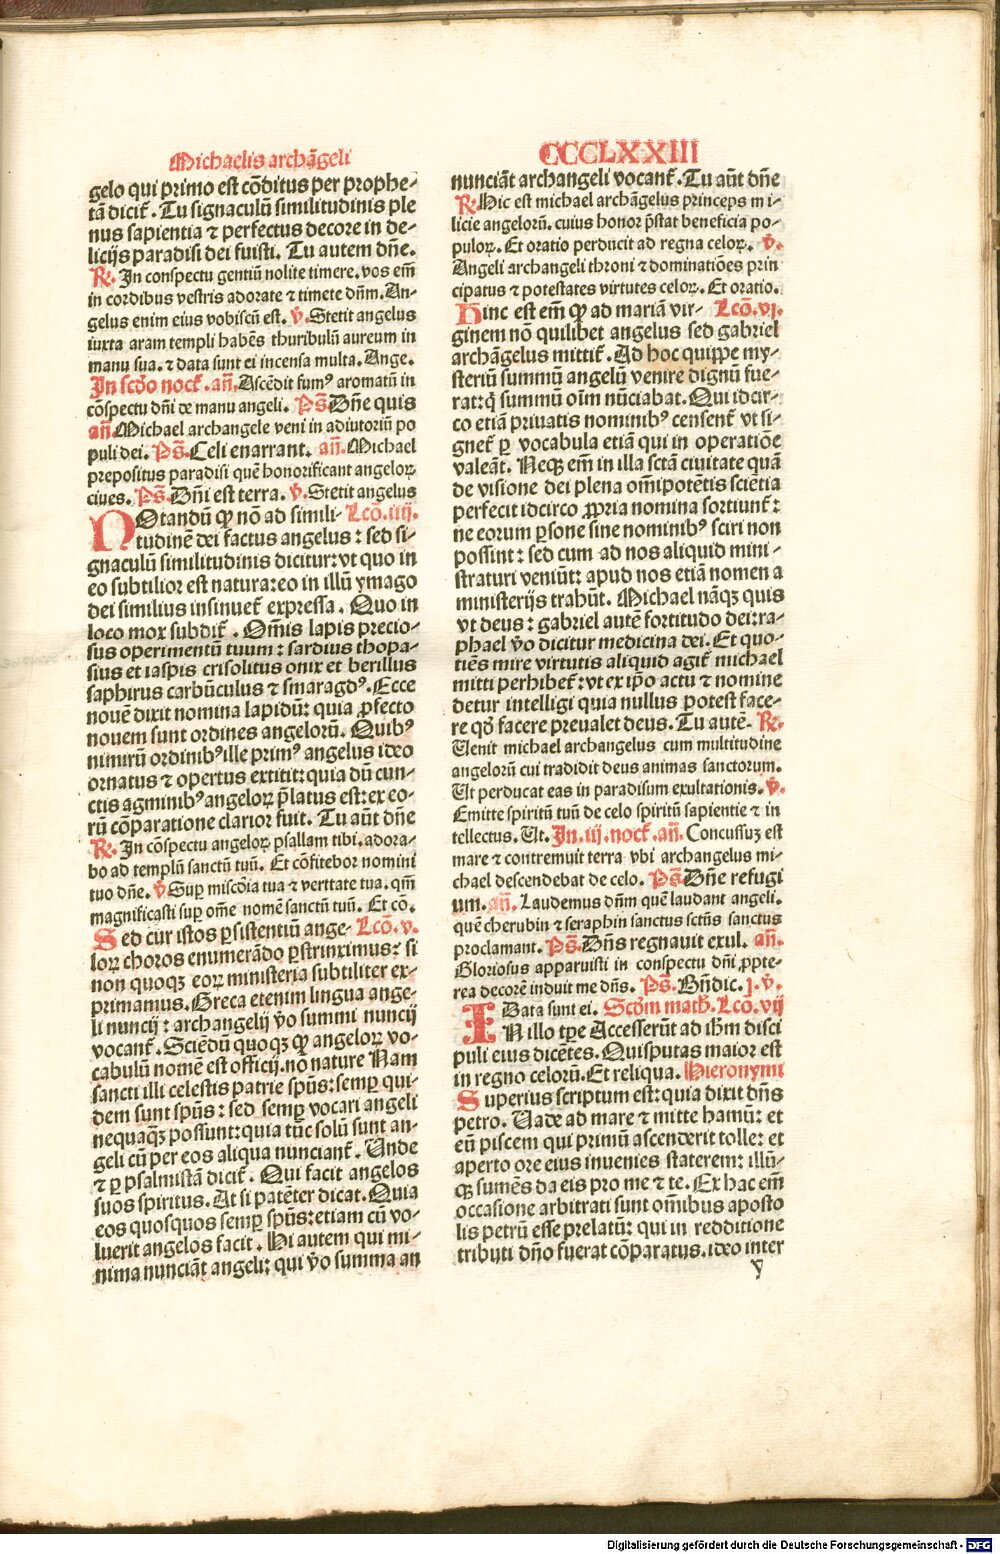 Michaelis archãgeli
CCCLXXIII
gelo qui primo est cõditus per prophe-
tã dicit̃. Tu signaculũ similitudinis ple
nus sapientia ⁊ perfectus decore in de-
licijs paradisi dei fuisti. Tu autem dñe.
℟. In conspectu gentiũ nolite timere. vos em̃
in cordibus vestris adorate ⁊ timete dñm. An-
gelus enim eius vobiscũ est. ℣. Stetit angelus
iuxta aram templi habẽs thuribulũ aureum in
manu sua. ⁊ data sunt ei incensa multa. Ange.
In scďo nocť. añ. Ascẽdit fumꝰ aromatũ in
cõspectu dñi de manu angeli. Ps̃. Dñe quis
añ. Michael archangele veni in adiutoriũ po
puli dei. Ps̃. Celi enarrant. añ. Michael
prepositus paradisi quẽ honorificant angeloꝝ
ciues. Ps̃. Dñi est terra. ℣. Stetit angelus
NOtandũ ꝙ nõ ad simili- Lcõ. iiij.
tudinẽ dei factus angelus: sed si-
gnaculũ similitudinis dicitur: vt quo in
eo subtilior est natura: eo in illũ ymago
dei similius insinuet̃ expressa. Quo in
loco mox subdit̃. Om̃is lapis precio-
sus operimentũ tuum: sardius thopa-
sius et iaspis crisolitus onix et berillus
saphirus carbũculus ⁊ smaragdꝰ. Ecce
nouẽ dixit nomina lapidũ: quia ꝓfecto
nouem sunt ordines angelorũ. Quibꝰ
nimirũ ordinibꝰ ille primꝰ angelus ideo
ornatus ⁊ opertus extitit: quia dũ cun-
ctis agminibꝰ angeloꝝ p̃latus est: ex eo-
rũ cõparatione clarior fuit. Tu aũt dñe
℟. In cõspectu angeloꝝ psallam tibi. adora-
bo ad templũ sanctũ tuũ. Et cõfitebor nomini
tuo dñe. ℣ Suꝑ miscďia tua ⁊ veritate tua. qm̃
magnificasti suꝑ om̃e nomẽ sanctũ tuũ. Et cõ.
Sed cur istos ꝑsistentiũ ange- Lcõ. v.
loꝝ choros enumerãdo ꝑstrinximus: si
non quoqꝫ eoꝝ ministeria subtiliter ex-
primamus. Greca etenim lingua ange-
li nuncij: archangelij v̾o summi nuncij
vocant̃. Sciẽdũ quoqꝫ ꝙ angeloꝝ vo-
cabulũ nomẽ est officij. nõ nature Nam
sancti illi celestis patrie sp̃us: semꝑ qui-
dem sunt sp̃us: sed semꝑ vocari angeli
nequaqꝫ possunt: quia tũc solũ sunt an-
geli cũ per eos aliqua nunciant̃. Unde
⁊ ꝑ psalmistã dicit̃. Qui facit angelos
suos spiritus. At si patẽter dicat. Quia
eos quosquos semꝑ sp̃us: etiam cũ vo-
luerit angelos facit. Hi autem qui mi-
nima nunciãt angeli: qui v̾o summa an
nunciãt archangeli vocant̃. Tu aũt dñe
℟. Hic est michael archãgelus princeps mi-
licie angelorũ. cuius honor p̃stat beneficia po-
puloꝝ. Et oratio perducit ad regna celoꝝ. ℣.
Angeli archangeli throni ⁊ dominatiões prin
cipatus ⁊ potestates virtutes celoꝝ. Et oratio.
Hinc est em̃ ꝙ ad mariã vir- Lcõ. vj.
ginem nõ quilibet angelus sed gabriel
archãgelus mittit̃. Ad hoc quippe my-
steriũ summũ angelũ venire dignũ fue-
rat: q̃ summũ oim̃ nũciabat. Qui idcir-
co etiã priuatis nominibꝰ censent̃ vt si-
gnet̃ ꝑ vocabula etiã qui in operatiõe
valeãt. Neqꝫ em̃ in illa sctã ciuitate quã
de visione dei plena om̃ipotẽtis sciẽtia
perfecit idcirco ꝓpria nomina sortiunt̃:
ne eorum ꝑsone sine nominibꝰ sciri non
possint: sed cum ad nos aliquid mini-
straturi veniũt: apud nos etiã nomen a
ministerijs trahũt. Michael nãqꝫ quis
vt deus: gabriel autẽ fortitudo dei: ra-
phael v̾o dicitur medicina dei. Et quo-
tiẽs mire virtutis aliquid agit̃ michael
mitti perhibet̃: vt ex ip̃o actu ⁊ nomine
detur intelligi quia nullus potest face-
re qď facere preualet deus. Tu autẽ. ℟.
Uenit michael archangelus cum multitudine
angelorũ cui tradidit deus animas sanctorum.
Ut perducat eas in paradisum exultationis. ℣.
Emitte spiritũ tuũ de celo spiritũ sapientie ⁊ in
tellectus. Ut. In. iij. nocť. añ. Concussuȝ est
mare ⁊ contremuit terra vbi archangelus mi-
chael descendebat de celo. Ps̃. Dñe refugi
um. añ. Laudemus dñm quẽ laudant angeli.
quẽ cherubin ⁊ seraphin sanctus sctũs sanctus
proclamant. Ps̃. Dñs regnauit exul. añ.
Gloriosus apparuisti in conspectu dñi ꝓpte-
rea decorẽ induit me dñs. Ps̃. Bñdic. j. ℣.
Data sunt ei. Scďm math̃. Lcõ. vij
IN illo tp̃e Accesserũt ad ih̃m disci
puli eius dicẽtes. Quisputas maior est
in regno celorũ. Et reliqua. Hieronymi
Superius scriptum est: quia dixit dñs
petro. Uade ad mare ⁊ mitte hamũ: et
eũ piscem qui primũ ascenderit tolle: et
aperto ore eius inuenies staterem: illũ-
qꝫ sumẽs da eis pro me ⁊ te. Ex hac em̃
occasione arbitrati sunt om̃ibus aposto
lis petrũ esse prelatũ: qui in redditione
tributi dño fuerat cõparatus. ideo inter
y
Digitalisierung gefördert durch die Deutsche Forschungsgemeinschaft - DFG